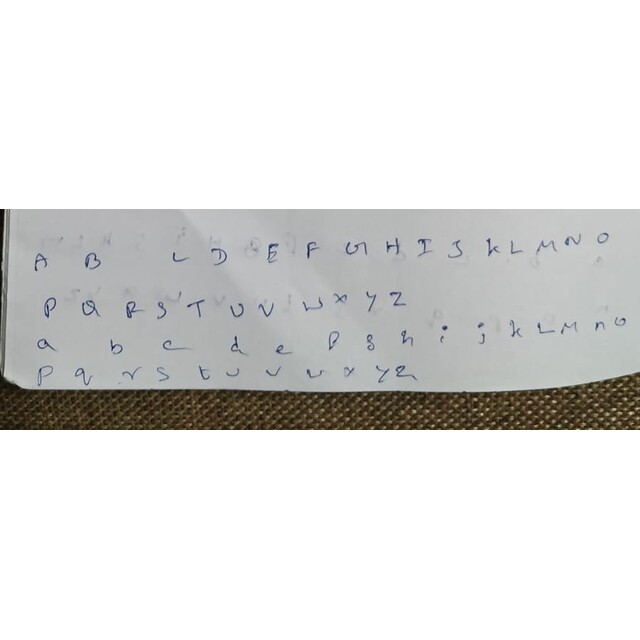 A B C D E F G H I J K L M N O
P Q R S T U V W X Y Z
a b c d e f g h i j k L M n o
p q r s t u v w x y z